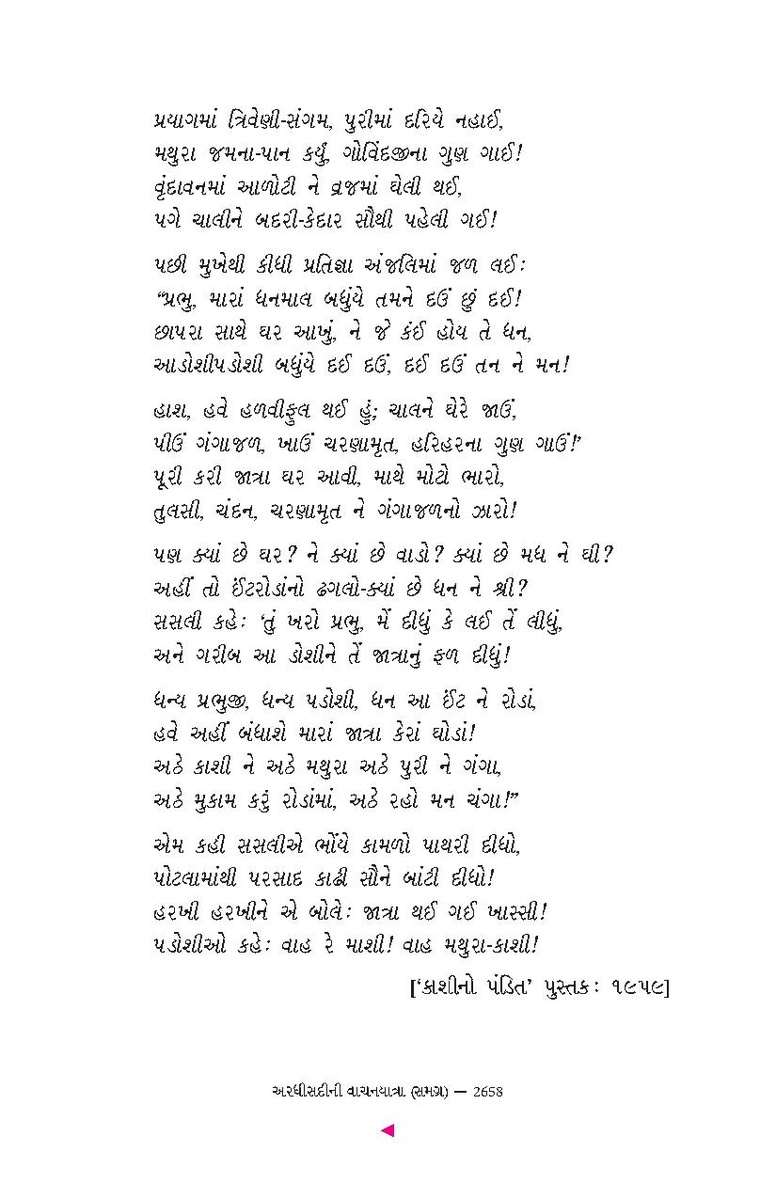 પ્રયાગમાં ત્રિવેણી-સંગમ, પુરીમાં દરિયે નહાઈ,
મથુરા જમના-પાન કર્યું, ગોવિંદજીના ગુણ ગાઈ!
વૃંદાવનમાં આળોટી ને વ્રજમાં ઘેલી થઈ,
પગે ચાલીને બદરી-કેદાર સૌથી પહેલી ગઈ!
પછી મુખેથી કીધી પ્રતિજ્ઞા અંજલિમાં જળ લઈઃ
“પ્રભુ, મારાં ધનમાલ બધુંયે તમને દઉં છું દઈ!
છાપરા સાથે ઘર આખું, ને જે કંઈ હોય તે ધન,
આડોશીપડોશી બધુંયે દઈ દઉં, દઈ દઉં તન ને મન!
હાશ, હવે હળવીફુલ થઈ હું; ચાલને ઘેરે જાઉં,
પીઉં ગંગાજળ, ખાઉં ચરણામૃત, હરિહરના ગુણ ગાઉં!”
પૂરી કરી જાત્રા ઘર આવી, માથે મોટો ભારો,
તુલસી, ચંદન, ચરણામૃત ને ગંગાજળનો ઝારો!
પણ ક્યાં છે ઘર? ને ક્યાં છે વાડો? ક્યાં છે મધ ને ઘી?
અહીં તો ઈંટરોડાંનો ઢગલો-ક્યાં છે ધન ને શ્રી?
સસલી કહેઃ ‘તું ખરો પ્રભુ, મેં દીધું કે લઈ તેં લીધું,
અને ગરીબ આ ડોશીને તેં જાત્રાનું ફળ દીધું!
ધન્ય પ્રભુજી, ધન્ય પડોશી, ધન આ ઈંટ ને રોડાં,
હવે અહીં બંધાશે મારાં જાત્રા કેરાં ઘોડાં!
અઠે કાશી ને અઠે મથુરા અઠે પુરી ને ગંગા,
અઠે મુકામ કરું રોડાંમાં, અઠે રહો મન ચંગા!”
એમ કહી સસલીએ ભોંયે કામળો પાથરી દીધો,
પોટલામાંથી પરસાદ કાઢી સૌને બાંટી દીધો!
હરખી હરખીને એ બોલેઃ જાત્રા થઈ ગઈ ખાસ્સી!
પડોશીઓ કહેઃ વાહ રે માશી! વાહ મથુરા-કાશી!
[‘કાશીનો પંડિત’ પુસ્તકઃ ૧૯૫૯]
અરધીસદીની વાચનયાત્રા (સમગ્ર) — 2658